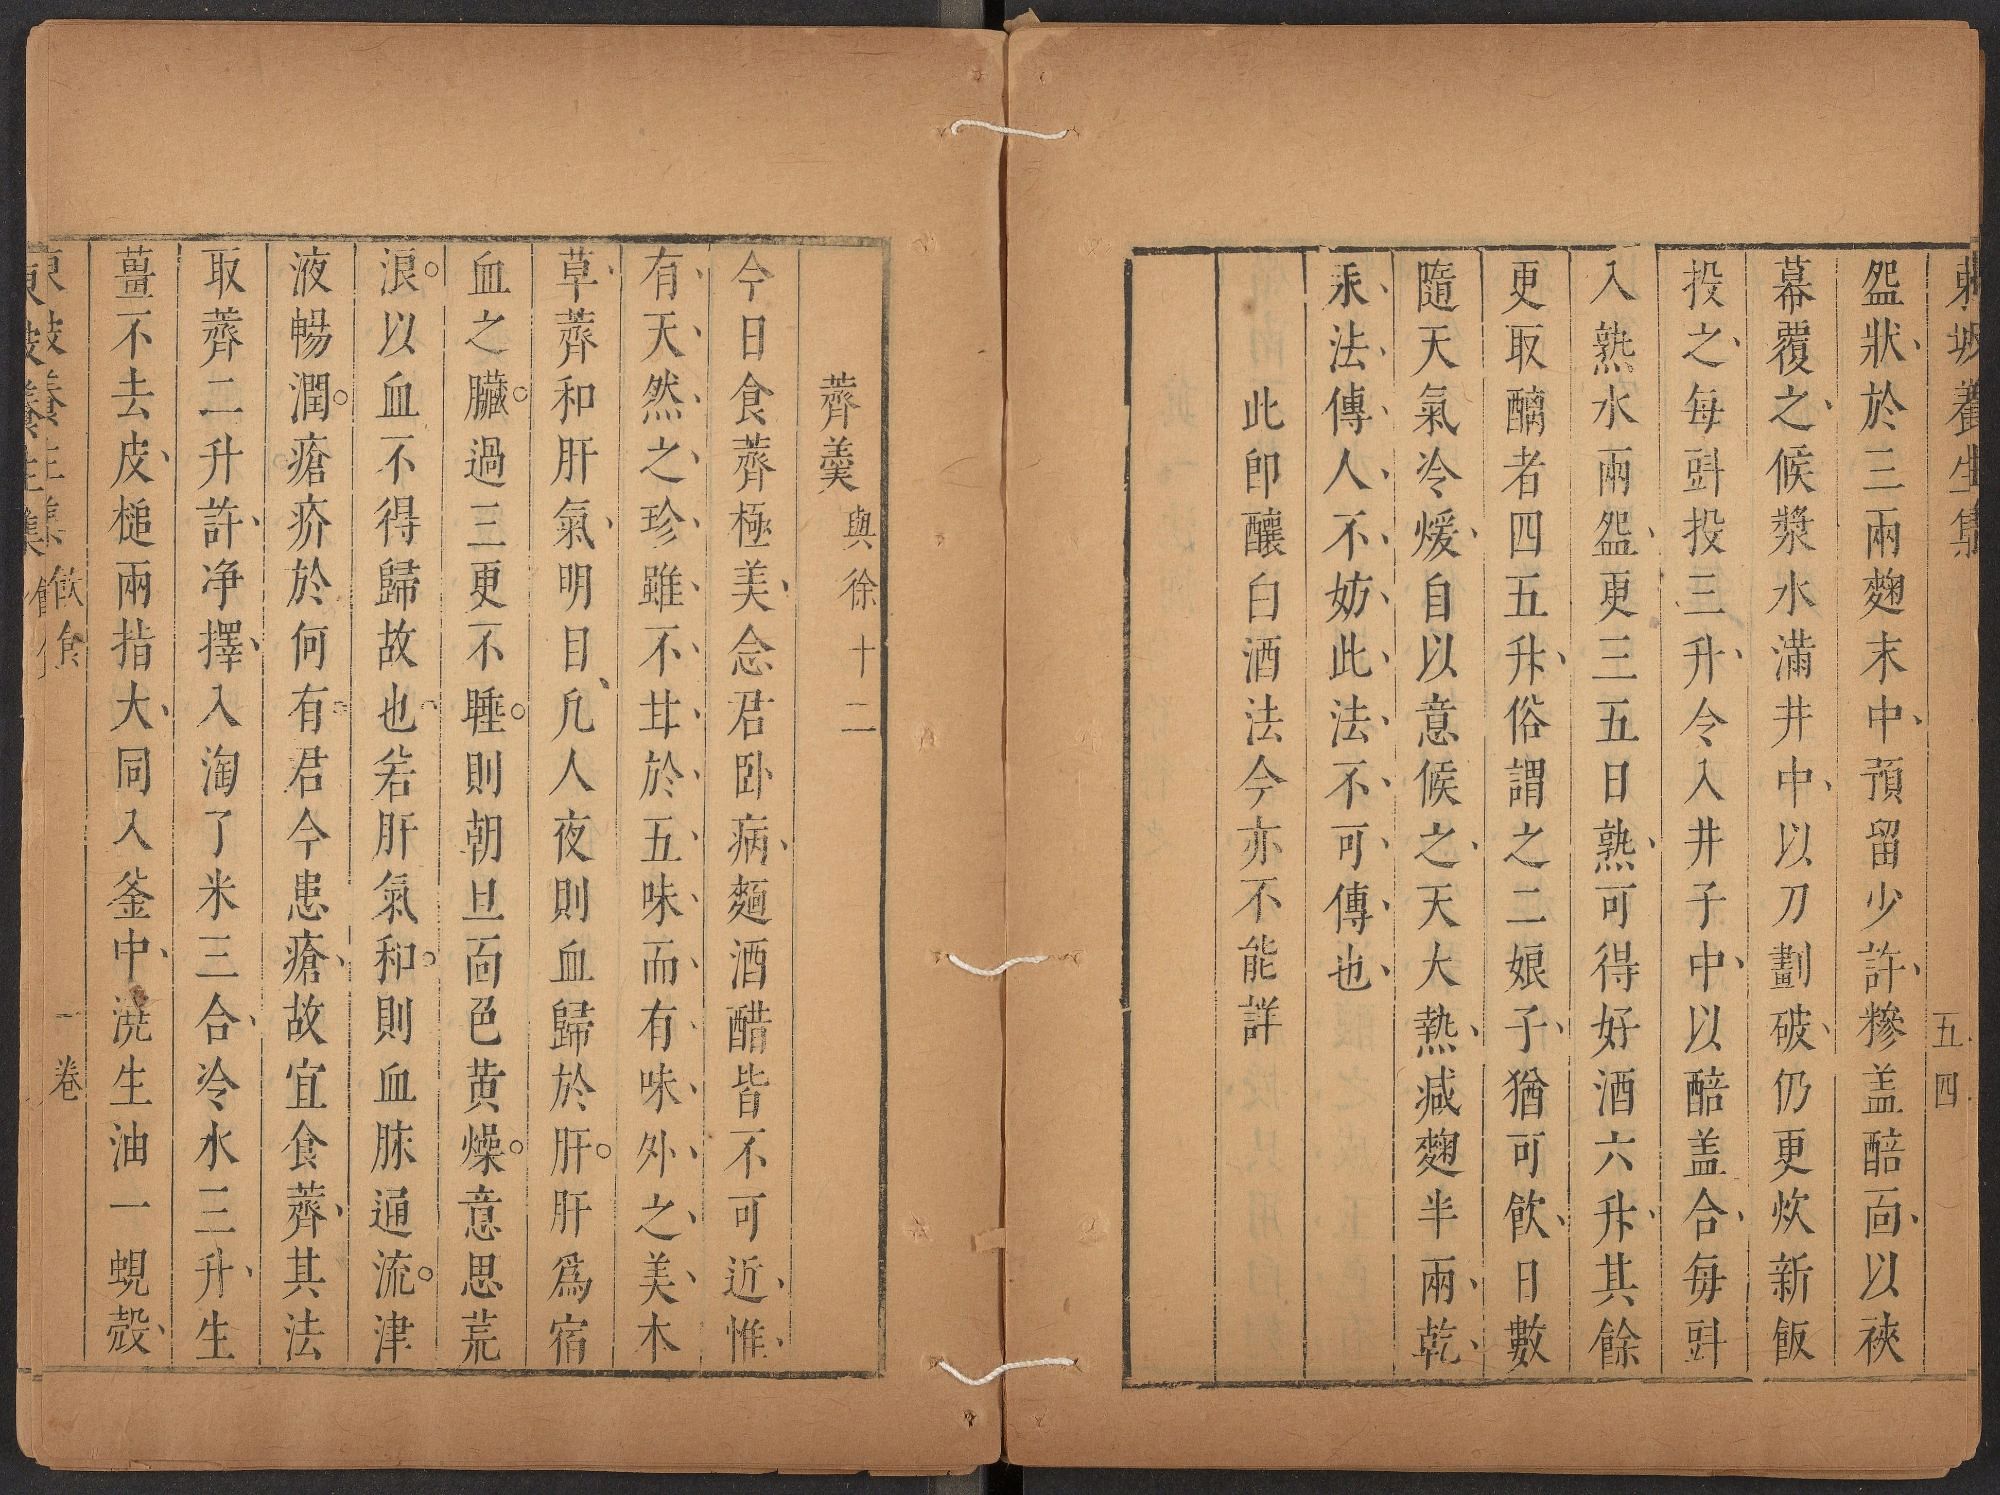 東坡養生集
五四
盌狀於三兩麴末中預留少許糝盖醅面以裌
幕覆之候漿水滿井中以刀劃破仍更炊新飯
投之每㪷投三升令入井子中以醅盖合每㪷
入熟水兩盌更三五日熟可得好酒六升其餘
更取醨者四五升俗謂之二娘子猶可飲日數
隨天氣冷煖自以意候之天大熱减麴半兩乾
汞法傳人不妨此法不可傳也
此卽釀白酒法今亦不能詳
薺羹與徐十二
今日食薺極美念君卧病麵酒醋皆不可近惟
有天然之珍雖不甘於五味而有味外之美木
草薺和肝氣明目凡人夜則血歸於肝肝爲宿
血之臟過三更不睡則朝旦面色黄燥意思荒
浪以血不得歸故也若肝氣和則血脉通流津
液暢潤瘡疥於何有君今患瘡故宜食薺其法
取薺二升許净擇入淘了米三合冷水三升生
薑不去皮槌兩指大同入釜中澆生油一蜆殼
飲食
一卷
東坡養生集